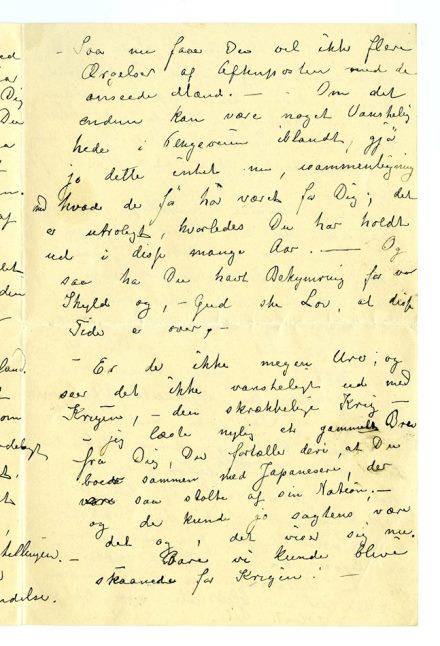 - Saa nu faar Du vel ikke flere
Ærgelser af Aftenposten med de
anseede Mænd. — - Om det
endnu kan være noget Vanskelig
hede i Pengeveien iblandt, gjør
jo dette intet nu, i sammenligning
med hvad de få har været for Dig; det
er utroligt, hvorledes Du har holdt
ud i disse mange Aar. — Og
saa ha Du havt Bekymring for vor
Skyld og, - Gud ske Lov, at disse
Tide er over, -
- Er de ikke megen Uro; og
seer det ikke vanskeligt ud med
Krigen, - den skrækkelige Krig -
- jeg læste nylig et gammelt Brev
fra Dig, Du fortæller deri, at Du
boede sammen med Japanesere, der
vare saa stolte af sin Nation. -
og de kunde jo sagtens være
det og, det viser sig nu.
- Bare vi kunde blive
skaanede for Krigen! -
land.
om
t.
tillingen.
ndelse.